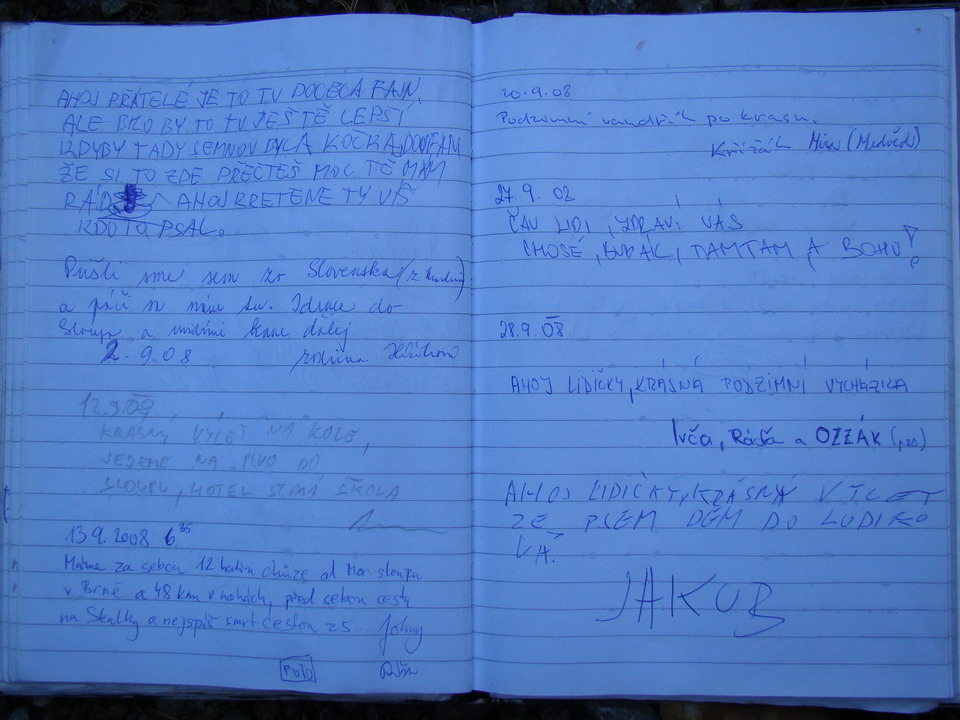 AHOJ PŘÁTELÉ JE TO TU DOCELA FAJN,
ALE BYLO BY TO TU JEŠTĚ LEPŠÍ
KDYBY TADY SEMNOU BYLA KOČKA, DOUFAM
ŽE SI TO ZDE PŘEČTEŠ MOC TĚ MÁM
RÁD AHOJ KRETENE TY VÍŠ
KDO TO PSAL.
Prišli sme sem zo Slovenska
a páči sa nám tu. Ideme do
Sloupu a uvidíme kam ďalej
2.9.08 rodina
12.9.08
KRÁSNÝ VÝLET NA KOLE,
JEDEME NA PIVO DO
SLOUPU, HOTEL STARÁ ŠKOLA
13.9.2008 6 35
Máme za sebou 12 hodin chůze od Mor. sloupu
v Brně a 48 km v nohách, před sebou cesty
na Skalky a nejspíš smrt cestou zs...
FOTO
20.9.08
Podzimní vandřík po krasu.
Křižák Míra (Medvěd)
27.9.02
ČAU LIDI, ZDRAVÍ VÁS
CHOSÉ, BUDÁK, TAMTAM A BOHO!
28.9.08
AHOJ LIDIČKY, KRÁSNÁ PODZIMNÍ VYCHÁZKA
Ivča, Ráďa a OZZÁK (pes)
AHOJ LIDIČKY, KRÁSNÝ VÝLET
ZE PSEM DEM DO LUDIKO
VA.
JAKUB